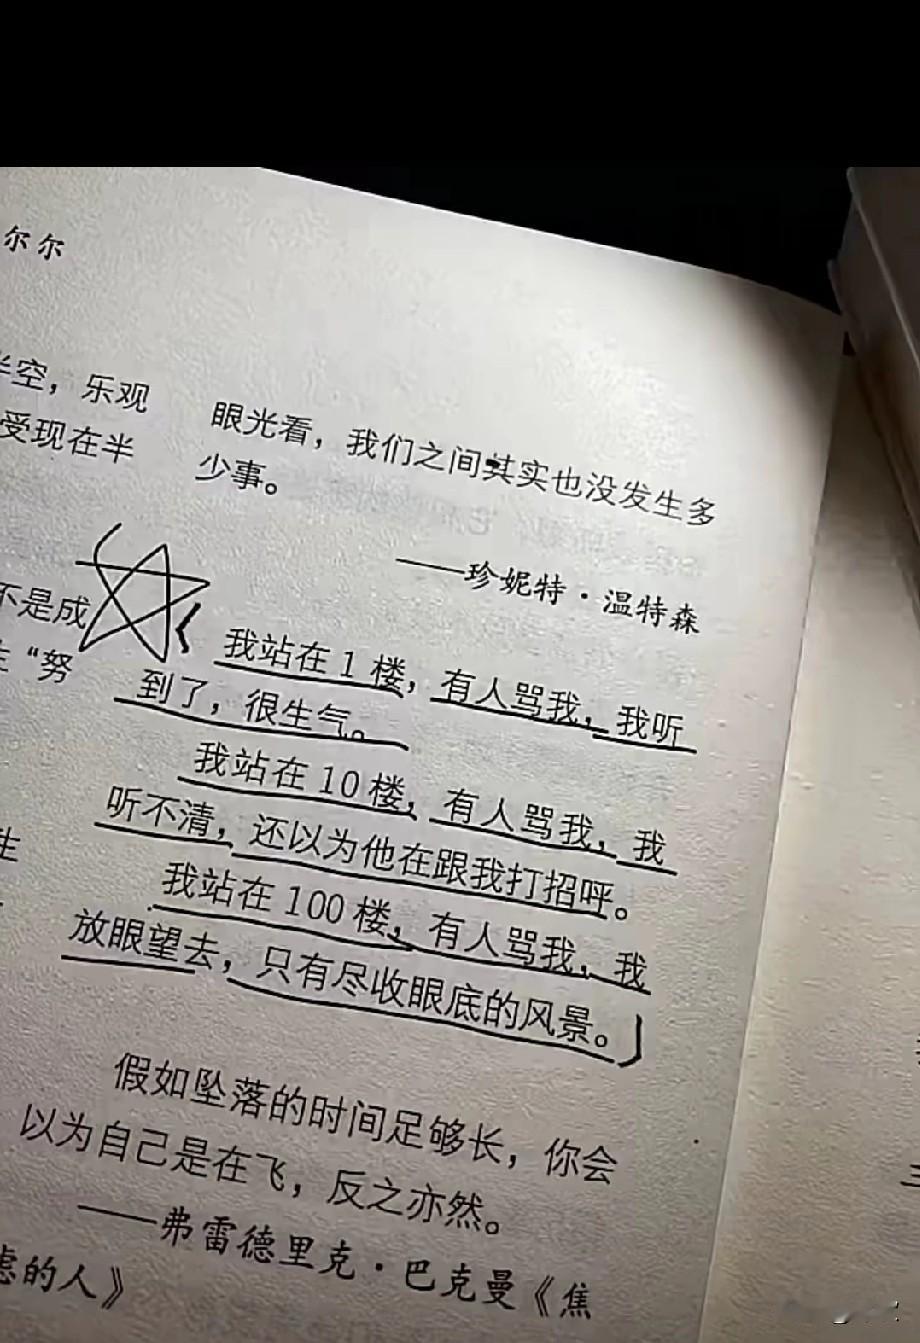 尔尔
半空，乐观
受现在半
不是成
“努
生
眼光看，我们之间其实也没发生多
少事。
——珍妮特·温特森
我站在1楼，有人骂我，我听
到了，很生气。
我站在10楼，有人骂我，我
听不清，还以为他在跟我打招呼。
我站在100楼，有人骂我，我
放眼望去，只有尽收眼底的风景。
假如坠落的时间足够长，你会
以为自己是在飞，反之亦然。
——弗雷德里克·巴克曼《焦
虑的人》
三